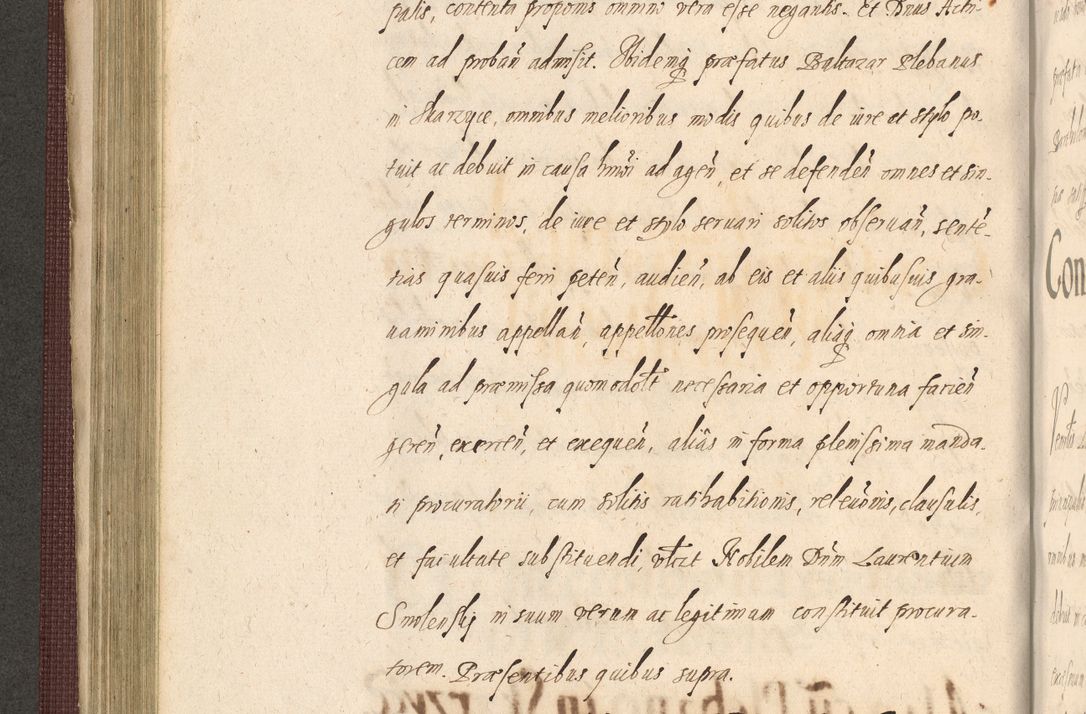 palis, contenta proponis omnino vera esse negantis. Et Dnus Acti-
cem ad proban̄ admisit. Ibidemq; præfatus Baltazar Plebanus
in Skarzyce, omnibus melioribus modis quibus de iure et stylo po-
tuit ac debuit in causa hmōi ad agen̄, et se defenden̄ omnes et sin-
gulos terminos, de iure et stylo servari solitos observan̄, sentē-
tias quasvis ferri peten̄, audien̄, ab eis et aliis quibusvis gra-
vaminibus appellan̄, appellōnes prosequen̄, aliaq; omnia et sin-
gula ad præmissa quomodolt necessaria et opportuna facien̄
geren̄, exercen̄, et exequen̄, aliâs in forma plenissima manda-
ti procuratorii, cum solitis ratihabitionis, relevōnis, clausulis,
et facultate substituendi, vtzt Nobilem Dnm Laurentium
Smolenskj in suum verum ac legitimum constituit procura-
torem. Præsentibus quibus supra.
Con